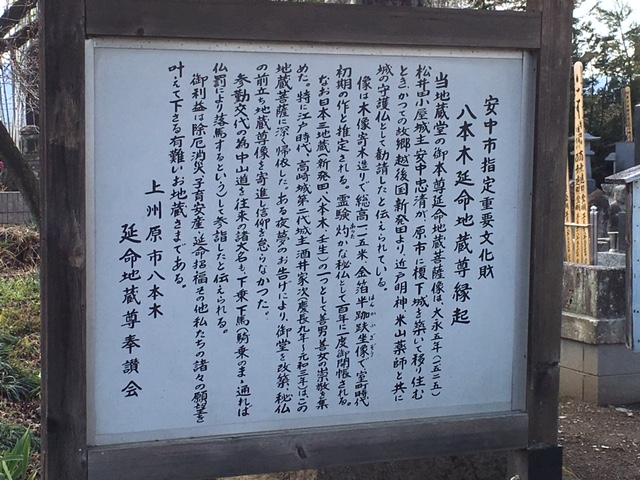 安中市指定重要文化財
八本木延命地蔵尊縁起
当地蔵堂の御本尊延命地蔵菩薩像は、大永五年(一五二五)
松井田小屋城主安中忠清が、原市に榎下城を築いて移り住む
とき、かつての故郷越後国新発田より近戸明神、米山薬師と共に
城の守護仏として勧請したと伝えられている。
像は木像寄木造りで総高一一五米、金箔半跏趺坐像で室町時代
はんかふざぞう
初期の作と推定される。霊験灼かな秘仏として百年に一度御開帳される。
あらた
なお日本三地蔵(新発田、八本木、壬生)の一つとして善男善女の崇敬を集
めた。特に江戸時代、高崎城第二代城主酒井家次(慶長九年〜元和二年)はこの
地蔵菩薩に深く帰依した。ある夜夢のお告げにより、御堂を改築、秘仏
の前立ち地蔵尊像を寄進し信仰を怠らなかった。
参勤交代の為中山道を往来の諸大名も、下乗、下馬(騎乗のまゝ通れば
仏罰により落馬するという)して参詣したと伝えられる。
御利益は除厄消災、子育安産、延命招福その他私たちの諸々の願望を
叶えて下さる有難いお地蔵さまである。
上州原市八本木
延命地蔵尊奉讃会